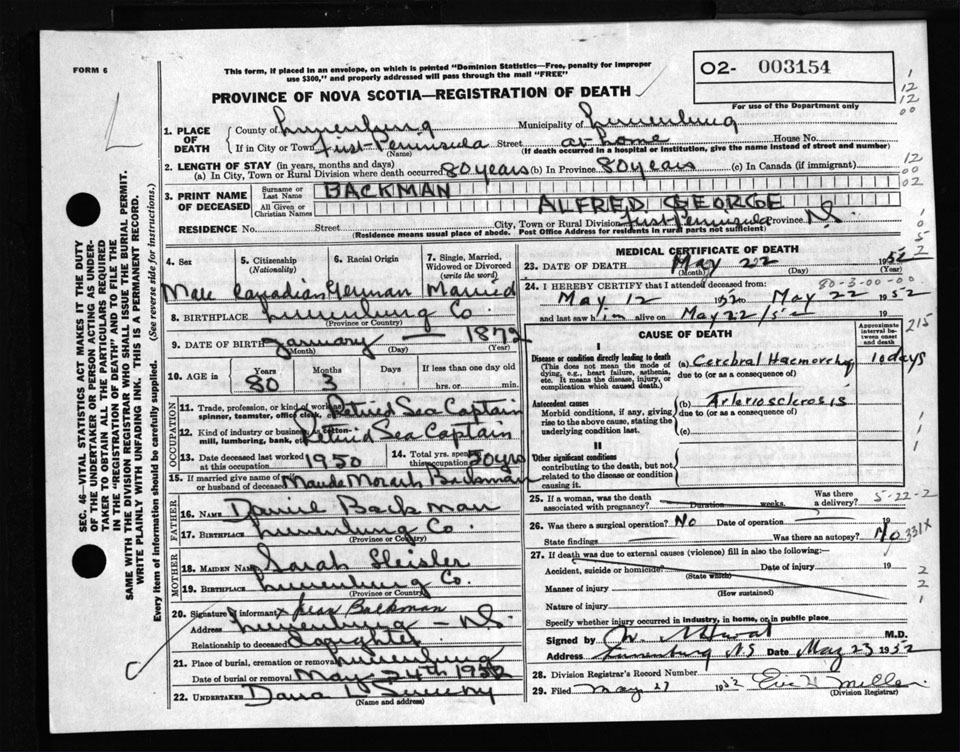 FORM 6
This form, if placed in an envelope, on which is printed "Dominion Statistics—Free, penalty for improper
use $300," and properly addressed will pass through the mail "FREE"
PROVINCE OF NOVA SCOTIA—REGISTRATION OF DEATH
02- 003154
For use of the Department only
1. PLACE OF DEATH County of Lunenburg Municipality of Lunenburg
If in City or Town First Peninsula Street at home House No.
(Name) (If death occurred in a hospital or institution, give the name instead of street and number)
2. LENGTH OF STAY (in years, months and days)
(a) In City, Town or Rural Division where death occurred 80 years (b) In Province 80 years (c) In Canada (if immigrant)
3. PRINT NAME OF DECEASED Surname or Last Name BACKMAN
All Given or Christian Names ALFRED GEORGE
RESIDENCE No. Street City, Town or Rural Division First Peninsula Province N.S.
(Residence means usual place of abode. Post Office Address for residents in rural parts not sufficient)
4. Sex 5. Citizenship (Nationality) 6. Racial Origin 7. Single, Married, Widowed or Divorced (write the word)
Male Canadian German Married
8. BIRTHPLACE Lunenburg Co.
(Province or Country)
9. DATE OF BIRTH January — 1872
(Month) (Day) (Year)
10. AGE in Years Months Days If less than one day old
80 3 hrs. or min.
OCCUPATION
11. Trade, profession, or kind of work as spinner, teamster, office clerk, etc. Retired Sea Captain
12. Kind of industry or business, as cotton-mill, lumbering, bank, etc. Retired Sea Captain
13. Date deceased last worked at this occupation 1950 14. Total yrs. spent in this occupation 50 yrs
15. If married give name of wife or husband of deceased Maude Morash Backman
FATHER
16. NAME Daniel Backman
17. BIRTHPLACE Lunenburg Co.
(Province or Country)
MOTHER
18. MAIDEN NAME Sarah Heisler
19. BIRTHPLACE Lunenburg Co.
(Province or Country)
20. Signature of informant x Backman
Address Lunenburg - N.S.
Relationship to deceased Daughter
21. Place of burial, cremation or removal Lunenburg
Date of burial or removal May 24th 1952
22. UNDERTAKER Dana L Sweeny
(Name and address)
MEDICAL CERTIFICATE OF DEATH
23. DATE OF DEATH May 22 1952
(Month) (Day) (Year)
80-3-00-00
24. I HEREBY CERTIFY that I attended deceased from
May 12 1952 to May 22 1952
and last saw him alive on May 22/52
CAUSE OF DEATH
Approximate interval between onset and death
I
Disease or condition directly leading to death (a) Cerebral Haemorrhage 10 days
(This does not mean the mode of dying, e.g., heart failure, asthenia, etc. It means the disease, injury, or complication which caused death.) due to (or as a consequence of)
Antecedent causes (b) Arteriosclerosis
Morbid conditions, if any, giving rise to the above cause, stating the underlying condition last. due to (or as a consequence of)
(c)
II
Other significant conditions
contributing to the death, but not related to the disease or condition causing it.
25. If a woman, was the death associated with pregnancy? Duration weeks. Was there a delivery?
5-22-2
26. Was there a surgical operation? No Date of operation 19
State findings Was there an autopsy? No
331X
27. If death was due to external causes (violence) fill in also the following:—
Accident, suicide or homicide? Date of injury 19
(State which)
Manner of injury
(How sustained)
Nature of injury
Specify whether injury occurred in industry, in home, or in public place
Signed by M.D.
Address Lunenburg N.S Date May 23 1952
28. Division Registrar's Record Number
29. Filed May 27 1952 Miller
(Division Registrar)
SEC. 46—VITAL STATISTICS ACT MAKES IT THE DUTY
OF THE UNDERTAKER OR PERSON ACTING AS UNDER-
TAKER TO OBTAIN ALL THE PARTICULARS REQUIRED
IN THE "REGISTRATION OF DEATH" AND TO FILE THE
SAME WITH THE DIVISION REGISTRAR WHO SHALL ISSUE THE BURIAL PERMIT.
WRITE PLAINLY WITH UNFADING INK. THIS IS A PERMANENT RECORD.
Every item of information should be carefully supplied. (See reverse side for instructions.)